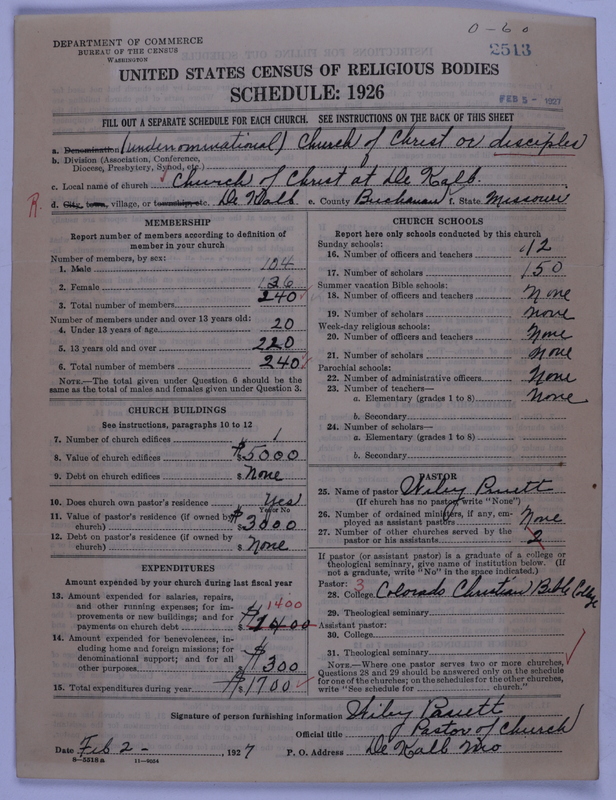 0-60
DEPARTMENT OF COMMERCE
BUREAU OF THE CENSUS
WASHINGTON
2513
UNITED STATES CENSUS OF RELIGIOUS BODIES
SCHEDULE: 1926
FEB 5 - 1927
FILL OUT A SEPARATE SCHEDULE FOR EACH CHURCH. SEE INSTRUCTIONS ON THE BACK OF THIS SHEET
a. Denomination (undenominational) Church of Christ or disciples
b. Division (Association, Conference,
Diocese, Presbytery, Synod, etc.)
c. Local name of church Church of Christ at De Kalb.
R. d. City, town, village, or township etc. De Kalb e. County Buchanan f. State Missouri
MEMBERSHIP
Report number of members according to definition of
member in your church
Number of members, by sex:
1. Male 104
2. Female 136
3. Total number of members 240
Number of members under and over 13 years old:
4. Under 13 years of age 20
5. 13 years old and over 220
6. Total number of members 240
NOTE.—The total given under Question 6 should be the
same as the total of males and females given under Question 3.
CHURCH BUILDINGS
See instructions, paragraphs 10 to 12
7. Number of church edifices 1
8. Value of church edifices $5000
9. Debt on church edifices $ None
10. Does church own pastor's residence Yes
Yes or No
11. Value of pastor's residence (if owned by
church) $3000
12. Debt on pastor's residence (if owned by
church) $ None
EXPENDITURES
Amount expended by your church during last fiscal year
13. Amount expended for salaries, repairs,
and other running expenses; for im-
provements or new buildings; and for
payments on church debt $ 1400
14. Amount expended for benevolences, in-
cluding home and foreign missions; for
denominational support; and for all
other purposes $ 300
15. Total expenditures during year $ 1700
CHURCH SCHOOLS
Report here only schools conducted by this church
Sunday schools:
16. Number of officers and teachers 12
17. Number of scholars 150
Summer vacation Bible schools:
18. Number of officers and teachers None
19. Number of scholars none
Week-day religious schools:
20. Number of officers and teachers None
21. Number of scholars none
Parochial schools:
22. Number of administrative officers None
23. Number of teachers—
a. Elementary (grades 1 to 8) None
b. Secondary
24. Number of scholars—
a. Elementary (grades 1 to 8)
b. Secondary
PASTOR
25. Name of pastor Wiley Pruett
(If church has no pastor, write "None")
26. Number of ordained ministers, if any, em-
ployed as assistant pastors None
27. Number of other churches served by the
pastor or his assistants 2
If pastor (or assistant pastor) is a graduate of a college or
theological seminary, give name of institution below. (If
not a graduate, write "No" in the space indicated.)
Pastor: 3
28. College Colorado Christian Bible College
29. Theological seminary
Assistant pastor:
30. College
31. Theological seminary
NOTE.—Where one pastor serves two or more churches,
Questions 28 and 29 should be answered only on the schedule
for one of the churches; on the schedules for the other churches,
write "See schedule for church."
Signature of person furnishing information Wiley Pruett
Official title Pastor of Church
Date Feb 2 - , 1927 P. O. Address De Kalb Mo
8-5518 a 11-9024